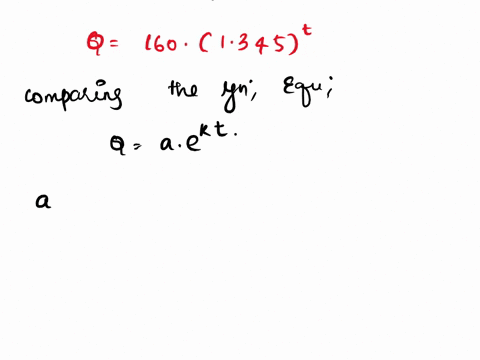 Q = 160 · (1.345)^t
comparing the gn; Equ;
Q = a · e^kt.
a